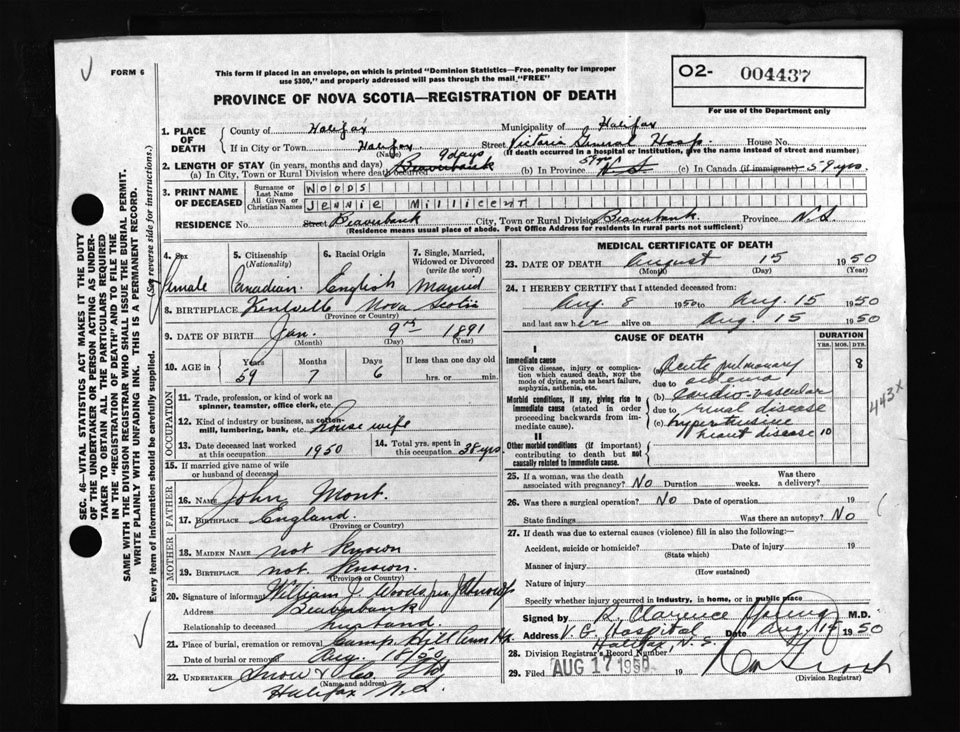 FORM 6
This form if placed in an envelope, on which is printed "Dominion Statistics—Free, penalty for improper
use $300," and properly addressed will pass through the mail "FREE"
O2- 004437
For use of the Department only
PROVINCE OF NOVA SCOTIA—REGISTRATION OF DEATH
SEC. 46—VITAL STATISTICS ACT MAKES IT THE DUTY
OF THE UNDERTAKER OR PERSON ACTING AS UNDER-
TAKER TO OBTAIN ALL THE PARTICULARS REQUIRED
IN THE "REGISTRATION OF DEATH" AND TO FILE THE
SAME WITH THE DIVISION REGISTRAR WHO SHALL ISSUE THE BURIAL PERMIT.
WRITE PLAINLY WITH UNFADING INK. THIS IS A PERMANENT RECORD.
Every item of information should be carefully supplied. (See reverse side for instructions.)
1. PLACE OF DEATH
County of Halifax Municipality of Halifax
If in City or Town Halifax Street Victoria General Hosp House No.
(Name) (If death occurred in a hospital or institution, give the name instead of street and number)
2. LENGTH OF STAY (in years, months and days) 9 days 59 yrs
(a) In City, Town or Rural Division where death occurred Beaverbank (b) In Province N.S. (c) In Canada (if immigrant) 59 yrs.
3. PRINT NAME OF DECEASED
Surname or Last Name WOODS
All Given or Christian Names JENNIE MILLICENT
RESIDENCE No. Street Beaverbank City, Town or Rural Division Beaverbank Province N.S.
(Residence means usual place of abode. Post Office Address for residents in rural parts not sufficient)
4. Sex 5. Citizenship (Nationality) 6. Racial Origin 7. Single, Married, Widowed or Divorced (write the word)
Female Canadian English Married
8. BIRTHPLACE Kentville Nova Scotia
(Province or Country)
9. DATE OF BIRTH Jan. 9th 1891
(Month) (Day) (Year)
10. AGE in Years Months Days If less than one day old
59 7 6 hrs. or min.
OCCUPATION
11. Trade, profession, or kind of work as
spinner, teamster, office clerk, etc.
12. Kind of industry or business, as cotton-
mill, lumbering, bank, etc. House wife
13. Date deceased last worked at this occupation 1950
14. Total yrs. spent in this occupation 38 yrs.
15. If married give name of wife
or husband of deceased
FATHER
16. NAME John Mont.
17. BIRTHPLACE England.
(Province or Country)
MOTHER
18. MAIDEN NAME not known
19. BIRTHPLACE not known.
(Province or Country)
20. Signature of informant William J. Woods
Address Beaverbank
Relationship to deceased husband.
21. Place of burial, cremation or removal Camp Hill
Date of burial or removal Aug. 18/50
22. UNDERTAKER Snow & Co. Ltd
(Name and address)
Halifax N.S.
MEDICAL CERTIFICATE OF DEATH
23. DATE OF DEATH August 15 1950
(Month) (Day) (Year)
24. I HEREBY CERTIFY that I attended deceased from:
Aug. 8 1950 to Aug. 15 1950
and last saw her alive on Aug. 15 1950
CAUSE OF DEATH DURATION
YRS. MOS. DYS.
I
Immediate cause
Give disease, injury or complica-
tion which caused death, not the
mode of dying, such as heart failure,
asphyxia, asthenia, etc.
Morbid conditions, if any, giving rise to
immediate cause (stated in order
proceeding backwards from im-
mediate cause).
II
Other morbid conditions (if important)
contributing to death but not
causally related to immediate cause.
(a) Acute pulmonary 8
due to oedema
(b) Cardio-vascular
due to renal disease
(c) hypertensive
heart disease 10
443X
25. If a woman, was the death
associated with pregnancy? No Duration weeks. Was there a delivery?
26. Was there a surgical operation? No Date of operation 19
State findings Was there an autopsy? No
27. If death was due to external causes (violence) fill in also the following:—
Accident, suicide or homicide? Date of injury 19
(State which)
Manner of injury
(How sustained)
Nature of injury
Specify whether injury occurred in industry, in home, or in public place
Signed by R. Clarence Young M.D.
Address V.G. Hospital Date Aug 15 1950
Halifax, N.S.
28. Division Registrar's Record Number
29. Filed AUG 17 1950 19
(Division Registrar)